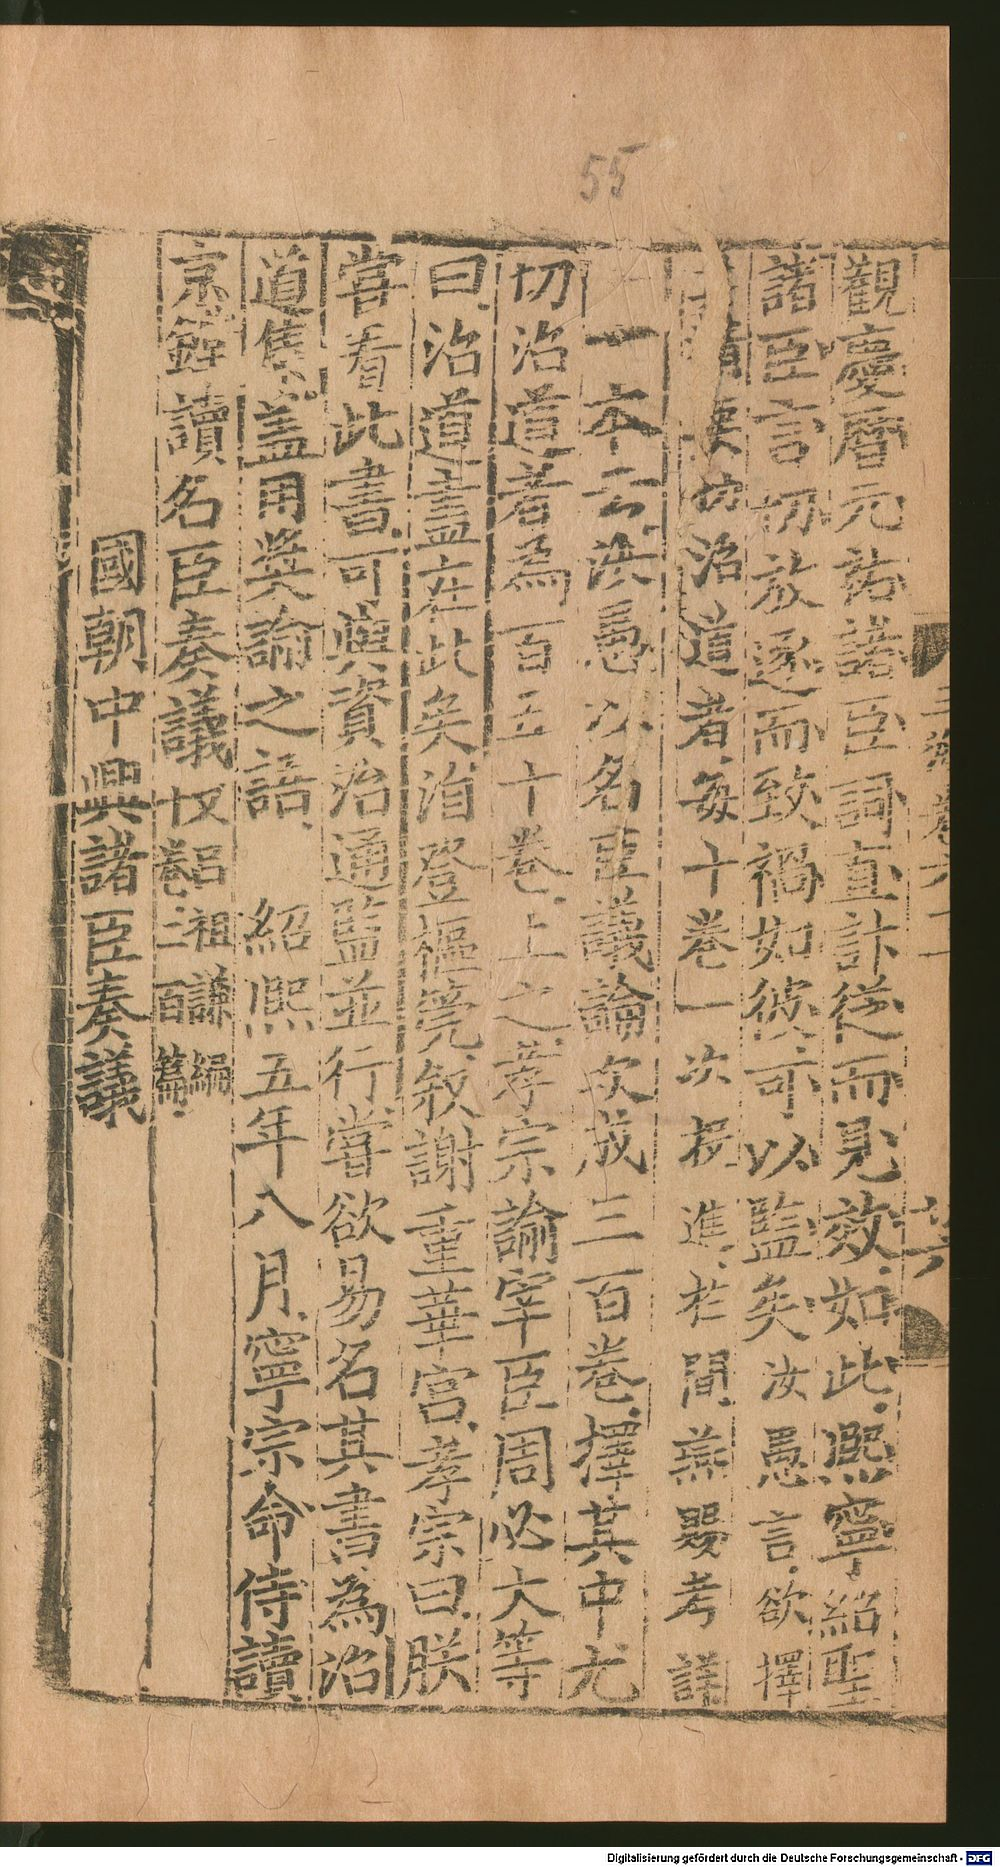 55
觀慶曆元祐諸臣詞直計從而見效如此熙寧紹聖
諸臣言切放逐而致禍如彼可以監矣汝愚言欲擇
切治道者每十卷一次投進於間燕嬰考詳
一本云洪愚以名臣議論次成三百卷擇其中尤
切治道者爲百五十卷上之孝宗諭宰臣周必大等
曰治道盡在此矣洎登樞筦敘謝重華宮孝宗曰朕
嘗看此書可與資治通監並行嘗欲易名其書爲治
道集盖用奨諭之語 紹熙五年八月寧宗命侍讀
京鏜讀名臣奏議
呂祖謙編
卷三百篇
國朝中興諸臣奏議
Digitalisierung gefördert durch die Deutsche Forschungsgemeinschaft - DFG